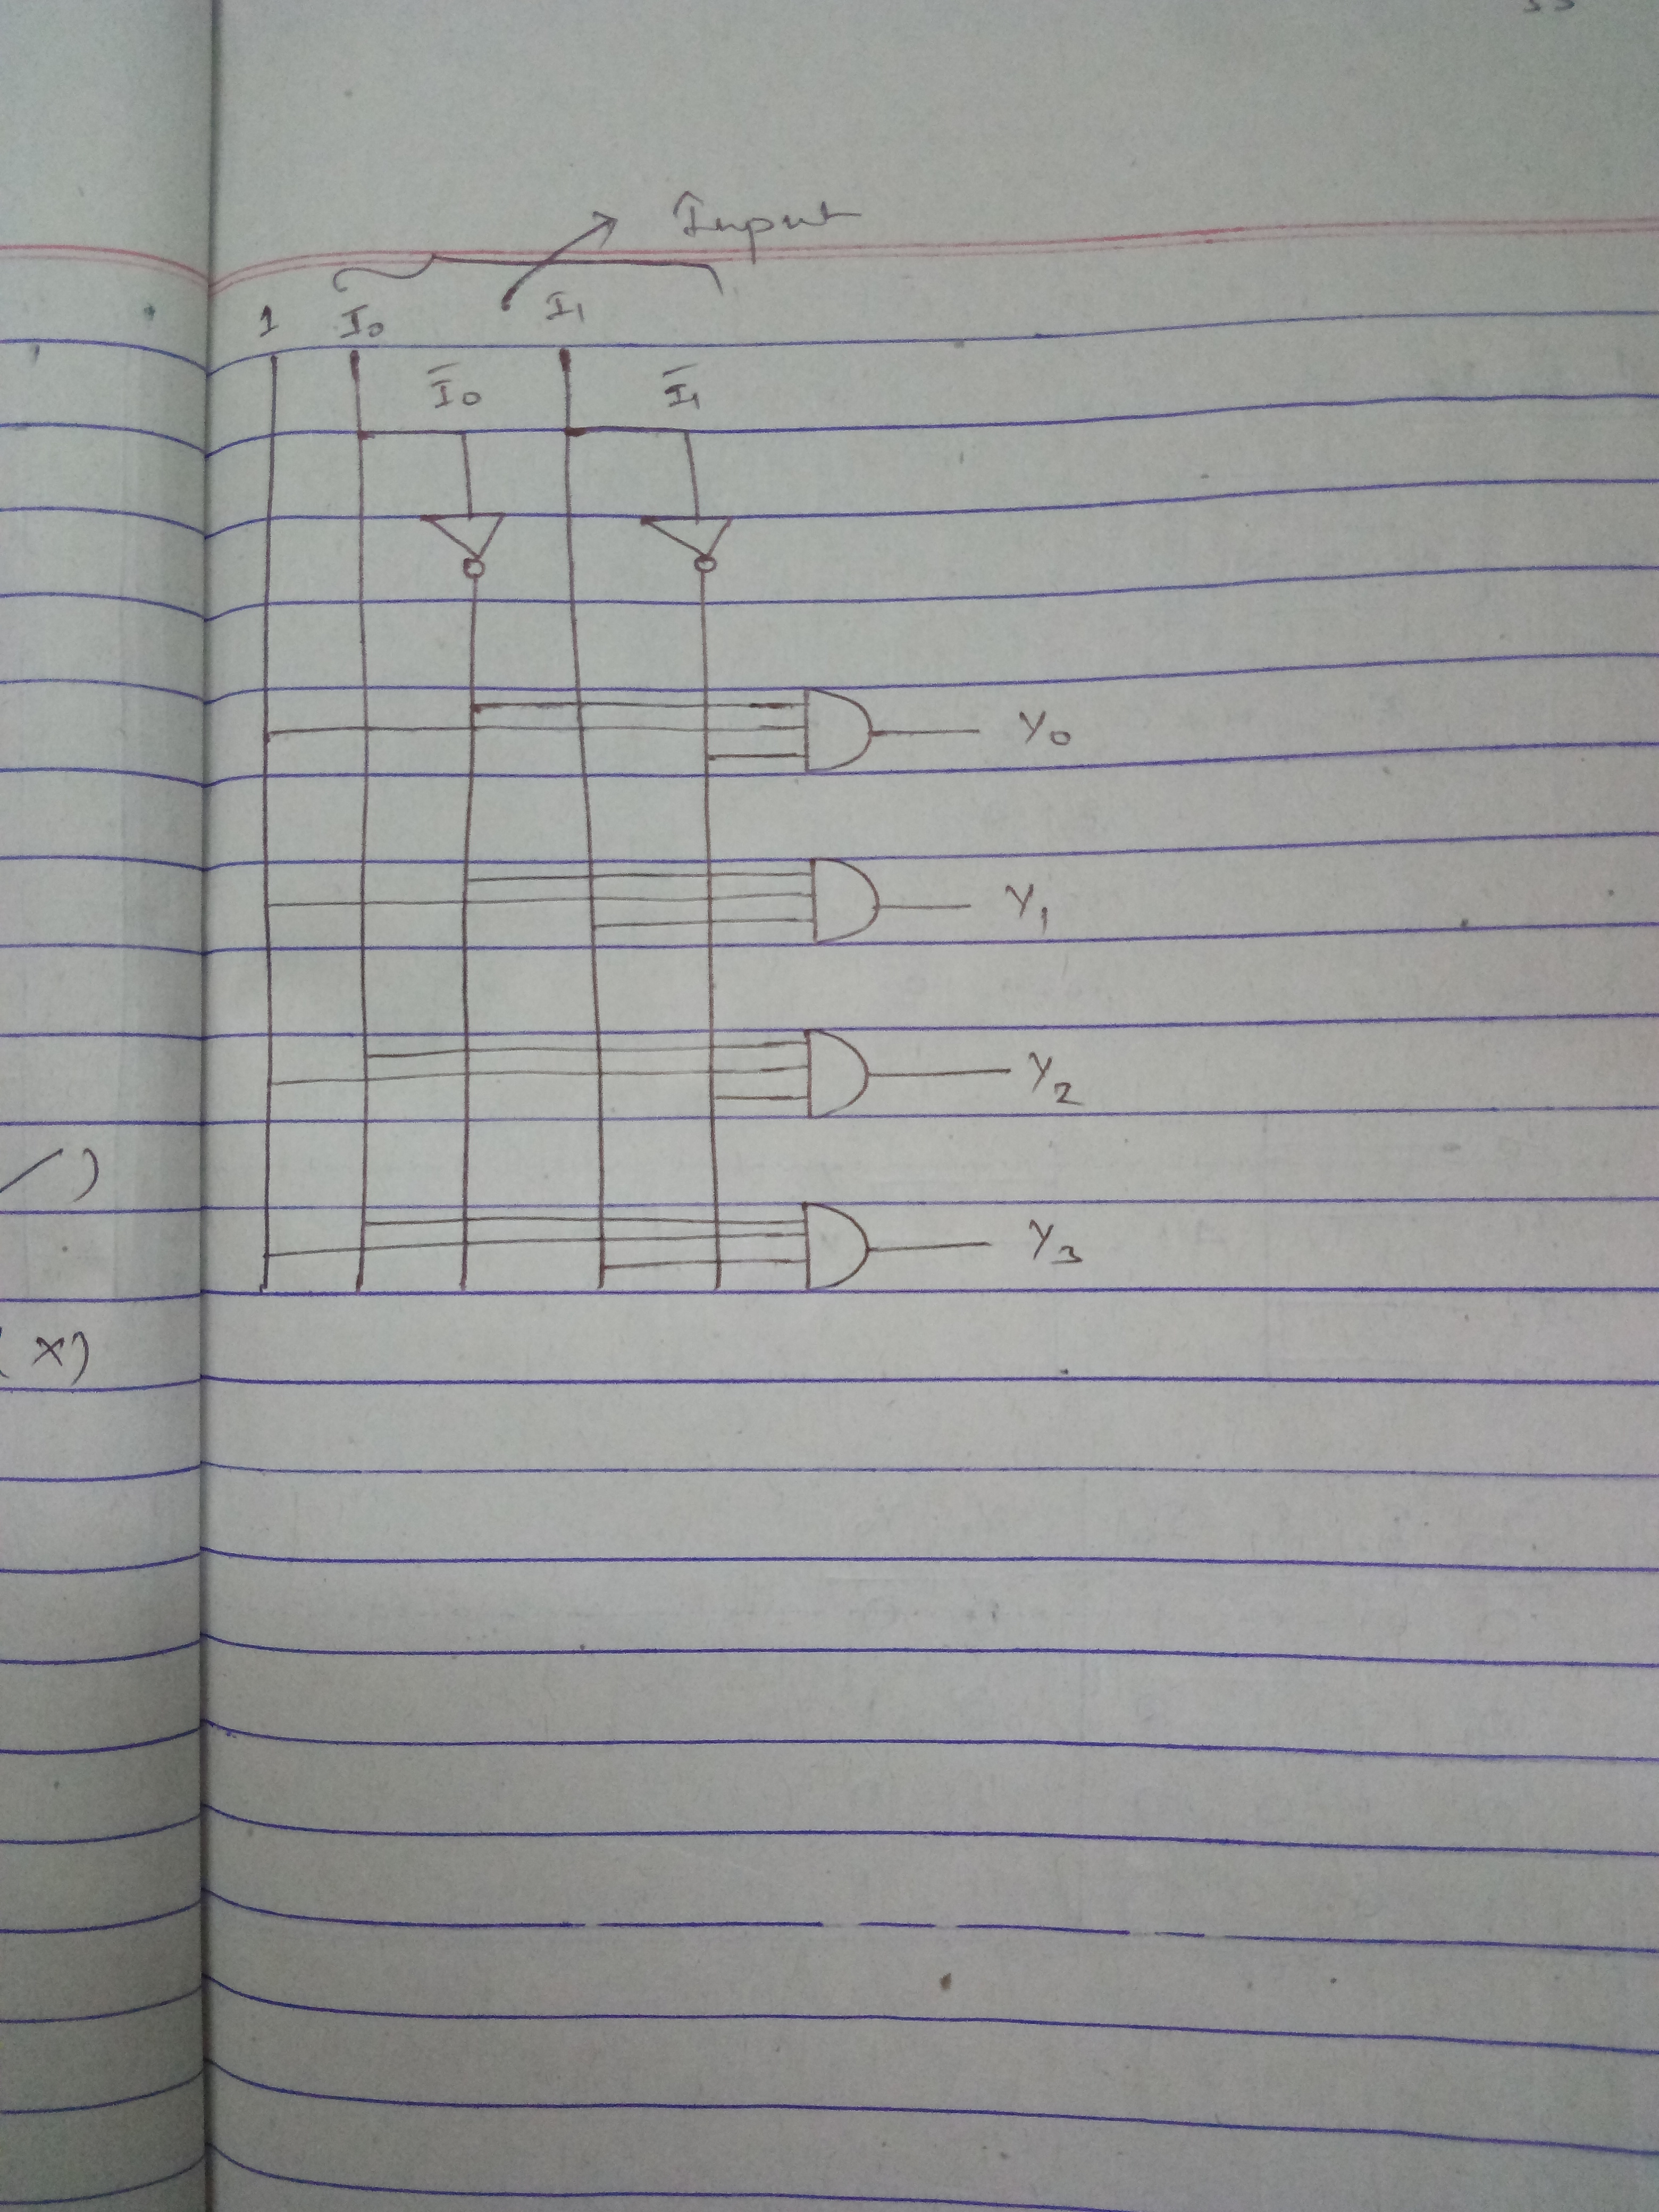 Input
1 I₀ I₁
I̅₀ I̅₁
Y₀
Y₁
Y₂
)
Y₃
(x)